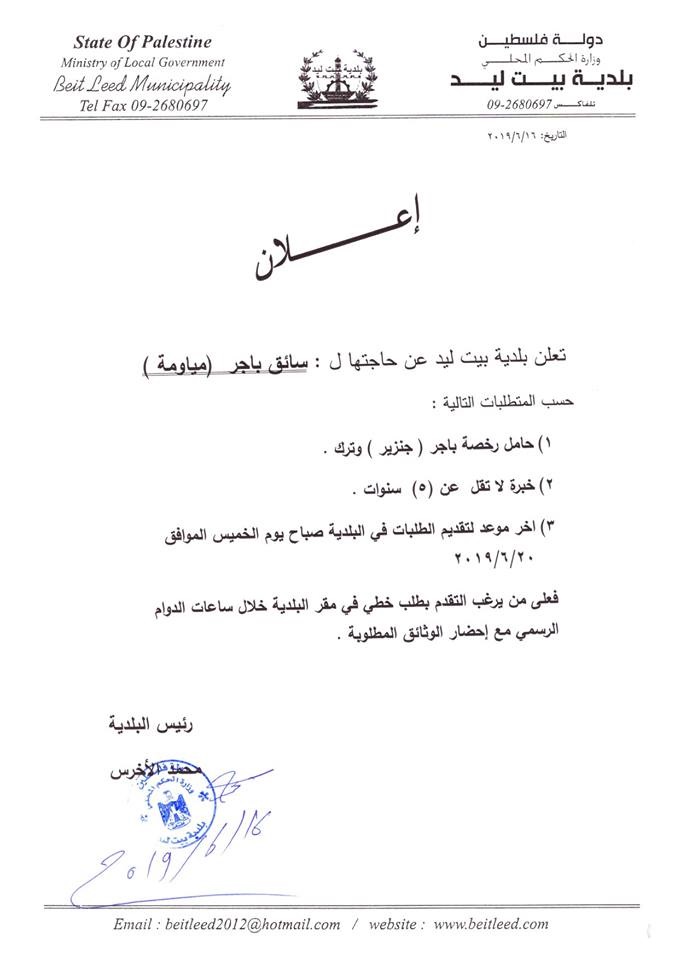 State Of Palestine
Ministry of Local Government
Beit Leed Municipality
Tel Fax 09-2680697
بلدية بيت ليد
دولة فلسطين
وزارة الحكم المحلي
بلدية بيت ليد
تلفاكس 09-2680697
التاريخ: ٢٠١٩/٦/١٦
إعلان
تعلن بلدية بيت ليد عن حاجتها ل : سائق باجر (مياومة )
حسب المتطلبات التالية :
١) حامل رخصة باجر ( جنزير ) وترك .
٢) خبرة لا تقل عن (٥) سنوات .
٣) اخر موعد لتقديم الطلبات في البلدية صباح يوم الخميس الموافق
٢٠١٩/٦/٢٠
فعلى من يرغب التقدم بطلب خطي في مقر البلدية خلال ساعات الدوام
الرسمي مع إحضار الوثائق المطلوبة .
رئيس البلدية
محمد الأخرس
وزارة الحكم المحلي
بلدية بيت ليد
2019/6/16
Email : beitleed2012@hotmail.com / website : www.beitleed.com